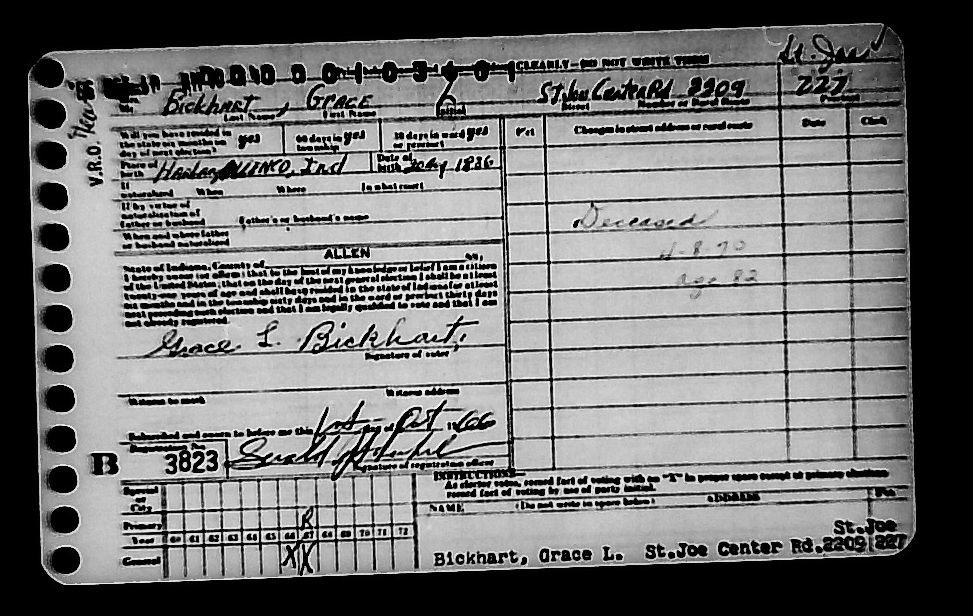 St. Joe
CLEARLY - DO NOT WRITE
Bickhart, Grace L
St Joe Center Rd 2209
227
Last Name First Name Initial
Street Number or Rural Route Precinct
V.R.O.
Will you have resided in the state six months on day of next election? yes
60 days in township yes
30 days in ward or precinct yes
Pct Changes in street address or rural route Date Clerk
Place of birth Harlan, Ind
Date of birth
If naturalized When Where In what court
If by virtue of naturalization of father or husband
Father's or husband's name
When and where father or husband naturalized
Deceased
4-8-70
age 82
ALLEN
State of Indiana, County of ss,
I hereby swear (or affirm) that to the best of my knowledge or belief I am a citizen
of the United States; that on the day of the next general election I shall be at least
twenty-one years of age and shall have resided in the state of Indiana for at least
six months and in the township sixty days and in the ward or precinct thirty days
next preceding such election and that I am legally qualified to vote and that I am
not already registered.
Grace L. Bickhart
Signature of voter
Witness to mark Witness address
Subscribed and sworn to before me this 1st day of Oct 1966
Registration No.
B 3823
Signature of registration officer
INSTRUCTIONS
As elector votes, record fact of voting with an "X" in proper space except at primary elections
record fact of voting by use of party initial.
NAME (Do not write in space below) ADDRESS Pct.
Special or City
Primary R
Year 60 61 62 63 64 65 66 67 68 69 70 71 72
General X X
St.Joe
Bickhart, Grace L. St.Joe Center Rd.2209 227